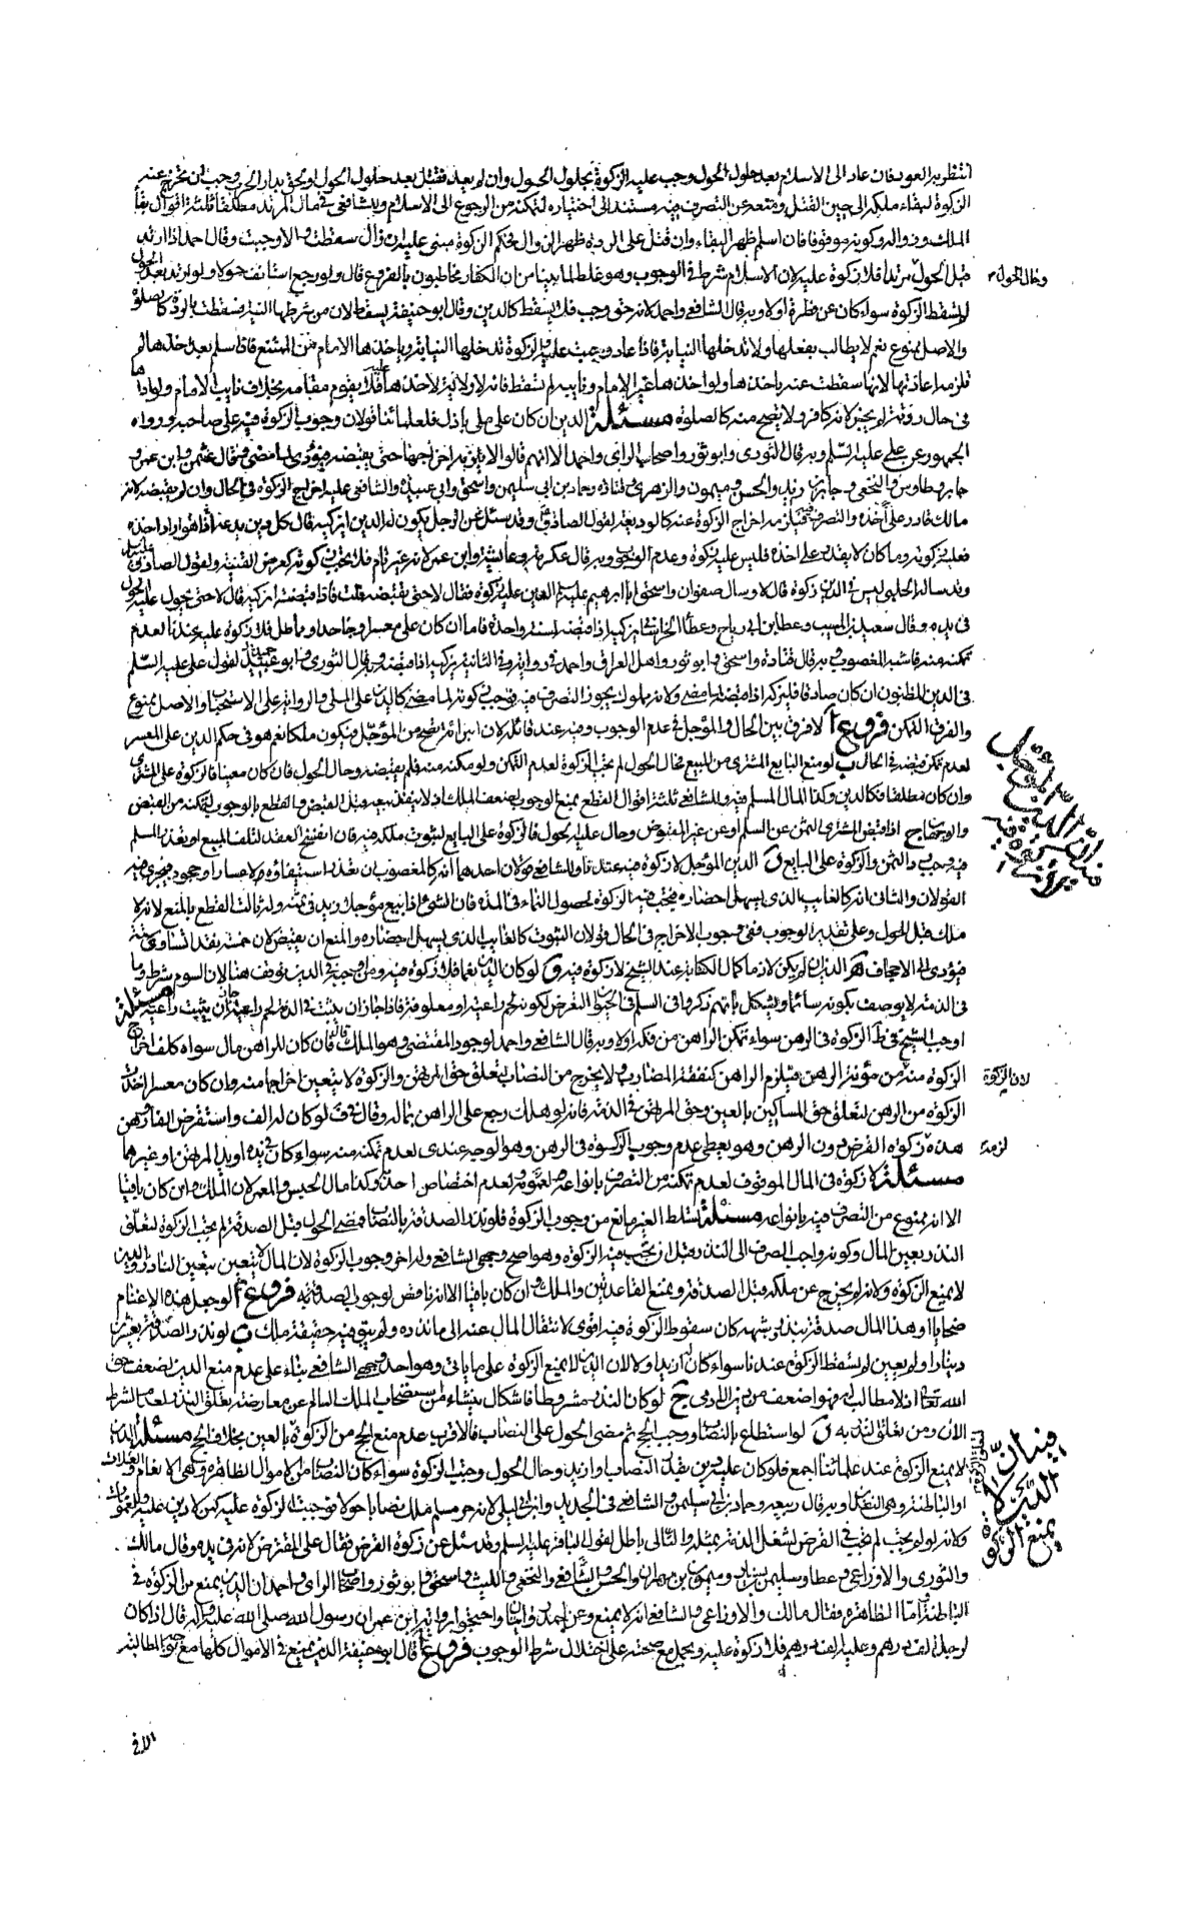 انتظر به العود فان عاد الى الاسلام بعد حلول الحول وجب عليه الزكوة بحلول الحول وان لم يعد فقتل بعد حلول الحول او لحق بدار الحرب وجب ان يخرج عنه
الزكوة لبقاء ملكه الى حين القتل ومنعه عن التصرف فيه مستند الى اختياره لتمكنه من الرجوع الى الاسلام وللشافعي في مال المرتد مطلقا ثلثة اقوال بقأ
الملك وزواله وكونه موقوفا فان اسلم ظهر البقاء وان قتل على الردة ظهر الزوال فحكم الزكوة مبني عليه ان زال سقطت والا وجبت وقال احمد اذا ارتد
قبل الحول مرتدا فلا زكوة عليه لان الاسلام شرط في الوجوب وهو غلط لما بينا من ان الكفار مخاطبون بالفروع قال ولو رجع استأنف حولا ولو ارتد بعد الحول
لم تسقط الزكوة سواء كان عن فطرة او لا وبه قال الشافعي واحمد لانه حق وجب فلا يسقط كالدين وقال ابو حنيفة يسقط لان من شرطها النية فسقطت بالردة كالصلوة
والاصل ممنوع نعم لا يطالب بفعلها ولا تدخلها النيابة فاذا عاد وجبت عليه والزكوة تدخلها النيابة ويأخذها الامام من الممتنع فاذا اسلم بعد اخذها لم
تلزمه اعادتها لانها سقطت عنه بأخذها ولو اخذها غير الامام ونايبه لم تسقط فانه لا ولاية له لاخذها فلا يقوم مقامه بخلاف نايب الامام ولو اداها
في حال ردته لم يجز لانه كافر ولا يصح منه كالصلوة مسئلة الدين ان كان على ملي باذل فلعلمائنا قولان وجوب الزكوة فيه على صاحبه ورواه
الجمهور عن علي عليه السلم وبه قال الثوري وابو ثور واصحاب الراى واحمد الا انهم قالوا لا يلزمه اخراجها حتى يقبضه فيؤدى لما مضى وقال عثمن وابن عمر و
جابر وطاوس والنخعي وجابر بن زيد والحسن وميمون والزهري وقتادة وحماد بن ابي سليمن واسحق وابو عبيد والشافعي عليه اخراج الزكوة في الحال وان لم يقبضه لانه
مالك قادر على أخذه والتصرف فيه فيلزمه اخراج الزكوة عنه كالوديعة لقول الصادق وقد سئل عن الرجل يكون له الدين ايزكيه قال كل دين يدعه اذا هو اراد اخذه
فعليه زكوته وما كان لا يقدر على اخذه فليس عليه زكوة وعدم الوجوب وبه قال عكرمة وعايشة وابن عمر لانه غير تام فلا يجب زكوته كعرض القنية ولقول الصادق عليه
وقد ساله الحلبي ليس في الدين زكوة قال لا وسال صفوان واسحق ابا ابرهيم عليه السلم الدين عليه زكوة فقال لا حتى يقبضه قلت فاذا قبضه ايزكيه قال لا حتى يحول عليه الحول
في يده وقال سعيد بن المسيب وعطا بن ابي رباح وعطا الخراساني يزكيه اذا قبضه لسنة واحدة فاما ان كان على معسر او جاحد او مماطل فلا زكوة عليه عندنا لعدم
تمكنه منه فاشبه المغصوب وبه قال قتادة واسحق وابو ثور واهل العراق واحمد في رواية وفي الثانية يزكيه اذا قبضه وبه قال الثوري وابو عبيد لقول علي عليه السلم
في الدين المظنون ان كان صادقا فليزكه اذا قبضه لما مضى ولانه مملوك يجوز التصرف فيه فوجب زكوته لما مضى كالدين على الملي والرواية على الاستحباب والاصل ممنوع
والفرق التمكن فروع أ لا فرق بين الحال والمؤجل في عدم الوجوب وفيه عند قائله لان البراءة تصح من المؤجل فيكون ملكا نعم هو في حكم الدين على المعسر
لعدم تمكن قبضه في الحال ب لو منع البايع المشترى من المبيع فحال الحول لم يجب الزكوة لعدم التمكن ولو مكنه منه فلم يقبضه وحال الحول فان كان معينا فالزكوة على المشتري
وان كان مطلقا فكالدين وكذا المال المسلم فيه وللشافعي ثلثة اقوال القطع بمنع الوجوب لضعف الملك اذ لا ينفذ بيعه قبل القبض والقطع بالوجوب لتمكنه من القبض
والوجهان ج اذا قبض المشترى الثمن عن السلم او عن غير المقبوض وحال عليه الحول فالزكوة على البايع لثبوت ملكه فيه فان انفسخ العقد لتلف المبيع او تعذر المسلم
فيه وجب رد الثمن والزكوة على البايع د الدين المؤجل لا زكوة فيه عندنا وللشافعي قولان احدهما انه كالمغصوب ان تعذر استيفاؤه لاعسار او جحود فيجرى فيه
القولان والثاني انه كالغايب الذي يسهل احضاره فيجب فيه الزكوة لحصول النماء في المدة فان الشئ اذا بيع مؤجلا زيد في ثمنه وله ثالث القطع بالمنع لانه لا
ملك قبل الحلول وعلى تقدير الوجوب ففي وجوب الاخراج في الحال قولان الثبوت كالغايب الذي يسهل احضاره والمنع ان يقبض لان خمسة نقدا تساوى ستة
فيؤدى الى الاجحاف ه الدين ان لم يكن لازما كمال الكتابة عند الشيخ لا زكوة فيه و لو كان الدين نعما فلا زكوة فيه ومن اوجبه في الدين توقف هنا لان السوم شرط وما
في الذمة لا يوصف بكونه سائما ويشكل بانهم ذكروا في السلم في الحيوان التعرض لكونه لحم راعية او معلوفة فاذا جاز ان يثبت في الذمة لحم راعية جاز ان يثبت راعية مسئلة
اوجب الشيخ في ط الزكوة في الرهن سواء تمكن الراهن من فكه او لا وبه قال الشافعي واحمد لوجود المقتضى وهو الملك قال فان كان للراهن مال سواه كلف اخراج
الزكوة منه لان الزكوة من مؤنة الرهن فيلزم الراهن كنفقة المضارب ولا يخرج من النصاب لتعلق حق المرتهن والزكوة لا يتعين اخراجها منه وان كان معسرا اخذت
الزكوة من الرهن لتعلق حق المساكين بالعين وحق المرتهن في الذمة فانه لو هلك رجع على الراهن بماله وقال في ف لو كان له الف واستقرض الفا ورهن
هذه لزمه زكوة القرض دون الرهن وهو يعطى عدم وجوب الزكوة في الرهن وهو الوجه عندى لعدم تمكنه منه سواء كان في يده او يد المرتهن او غيرهما
مسئلة لا زكوة في المال الموقوف لعدم تمكنه من التصرف بانواعه ولعدم اختصاص احد به وكذا مال الحبس والمعمر لان الملك وان كان باقيا
الا انه ممنوع من التصرف فيه بانواعه مسئلة تسلط الغير مانع من وجوب الزكوة فلو نذر الصدقة بالنصاب فمضى الحول قبل الصدقة لم يجب الزكوة لتعلق
النذر بعين المال وكونه واجب الصرف الى النذر قبل ان تجب فيه الزكوة وهو اصح وجهي الشافعي وله اخر وجوب الزكوة لان المال لا يتعين بتعيين الناذر والدين
لا يمنع الزكوة ولانه لم يخرج عن ملكه قبل الصدقة ونمنع القاعدتين والملك وان كان باقيا الا انه ناقص لوجوب الصدقة به فروع أ لو جعل هذه الاغنام
ضحايا او هذا المال صدقة بنذر وشبهه كان سقوط الزكوة فيه اقوى لانتقال المال عنه الى ما نذره ولم يبق فيه حقيقة ملك ب لو نذر الصدقة بعشرين
دينارا ولم يعين لم تسقط الزكوة عندنا سواء كان له ازيد او لا لان الدين لا يمنع الزكوة على ما ياتي وهو احد وجهى الشافعي بناء على عدم منع الدين لضعف حق
الله تعالى اذ لا مطالب له فهو اضعف من دين الادمى ج لو كان النذر مشروطا فاشكال ينشاء من استصحاب الملك السالم عن معارضته تعلق النذر لعدم الشرط
الآن ومن تعلق النذر به د لو استطاع بالنصاب ووجب الحج ثم مضى الحول على النصاب فالاقرب عدم منع الحج من الزكوة لتعلق الزكوة بالعين بخلاف الحج مسئلة الدين
لا يمنع الزكوة عند علمائنا اجمع فلو كان عليه دين بقدر النصاب او ازيد وحال الحول وجبت الزكوة سواء كان النصاب من الاموال الظاهرة وهي الانعام والغلات
او الباطنة وهي النقدان وبه قال ربيعه وحماد بن ابي سليمن والشافعي في الجديد وابن ابي ليلى لانه حر مسلم ملك نصابا حولا فوجبت الزكوة عليه كمن لا دين عليه وللعمومات
ولانه لو لم يجب لم تجب في القرض لشغل الذمة بمثله والتالى باطل لقول الباقر عليه السلم وقد سئل عن زكوة القرض فقال على المقترض لانه في يده وقال مالك
والثورى والاوزاعى وعطا وسليمن بن يسار وميمون بن مهران والحسن والشافعي والنخعي والليث واسحق وابو ثور واصحاب الراى واحمد ان الدين يمنع من الزكوة في
الباطنة واما الظاهرة فقال مالك والاوزاعي والشافعي انه لا يمنع وعن احمد روايتان واحتجوا برواية ابن عمر ان رسول الله صلى الله عليه واله قال اذا كان
لرجل الف درهم وعليه الف درهم فلا زكوة عليه ويحمل مع صحته على اختلال شرط الوجوب فروع أ قال ابو حنيفة الدين يمنع في الاموال كلها مع توجه المطالبة
وحال الحول
في ان الدين المؤجل لا زكوة فيه
لان الزكوة
لزمه
في ان الدين لا يمنع الزكوة
الا في